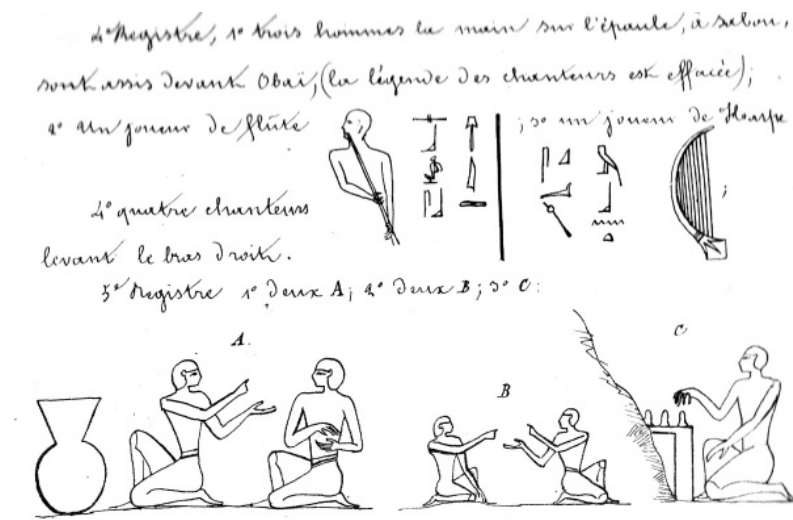 4° Registre, 1° trois hommes la main sur l'épaule, à sabou,
sont assis devant Obaï, (la légende des chanteurs est effacée);
2° un joueur de flûte ; 3° un joueur de Harpe
;
4° quatre chanteurs
levant le bras droit.
5° Registre 1° deux A; 2° deux B; 3° C:
A.
B
C